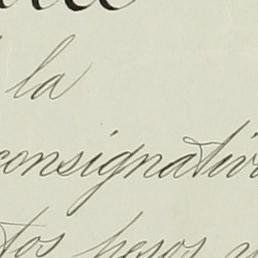 la
consignativ
tos pesos